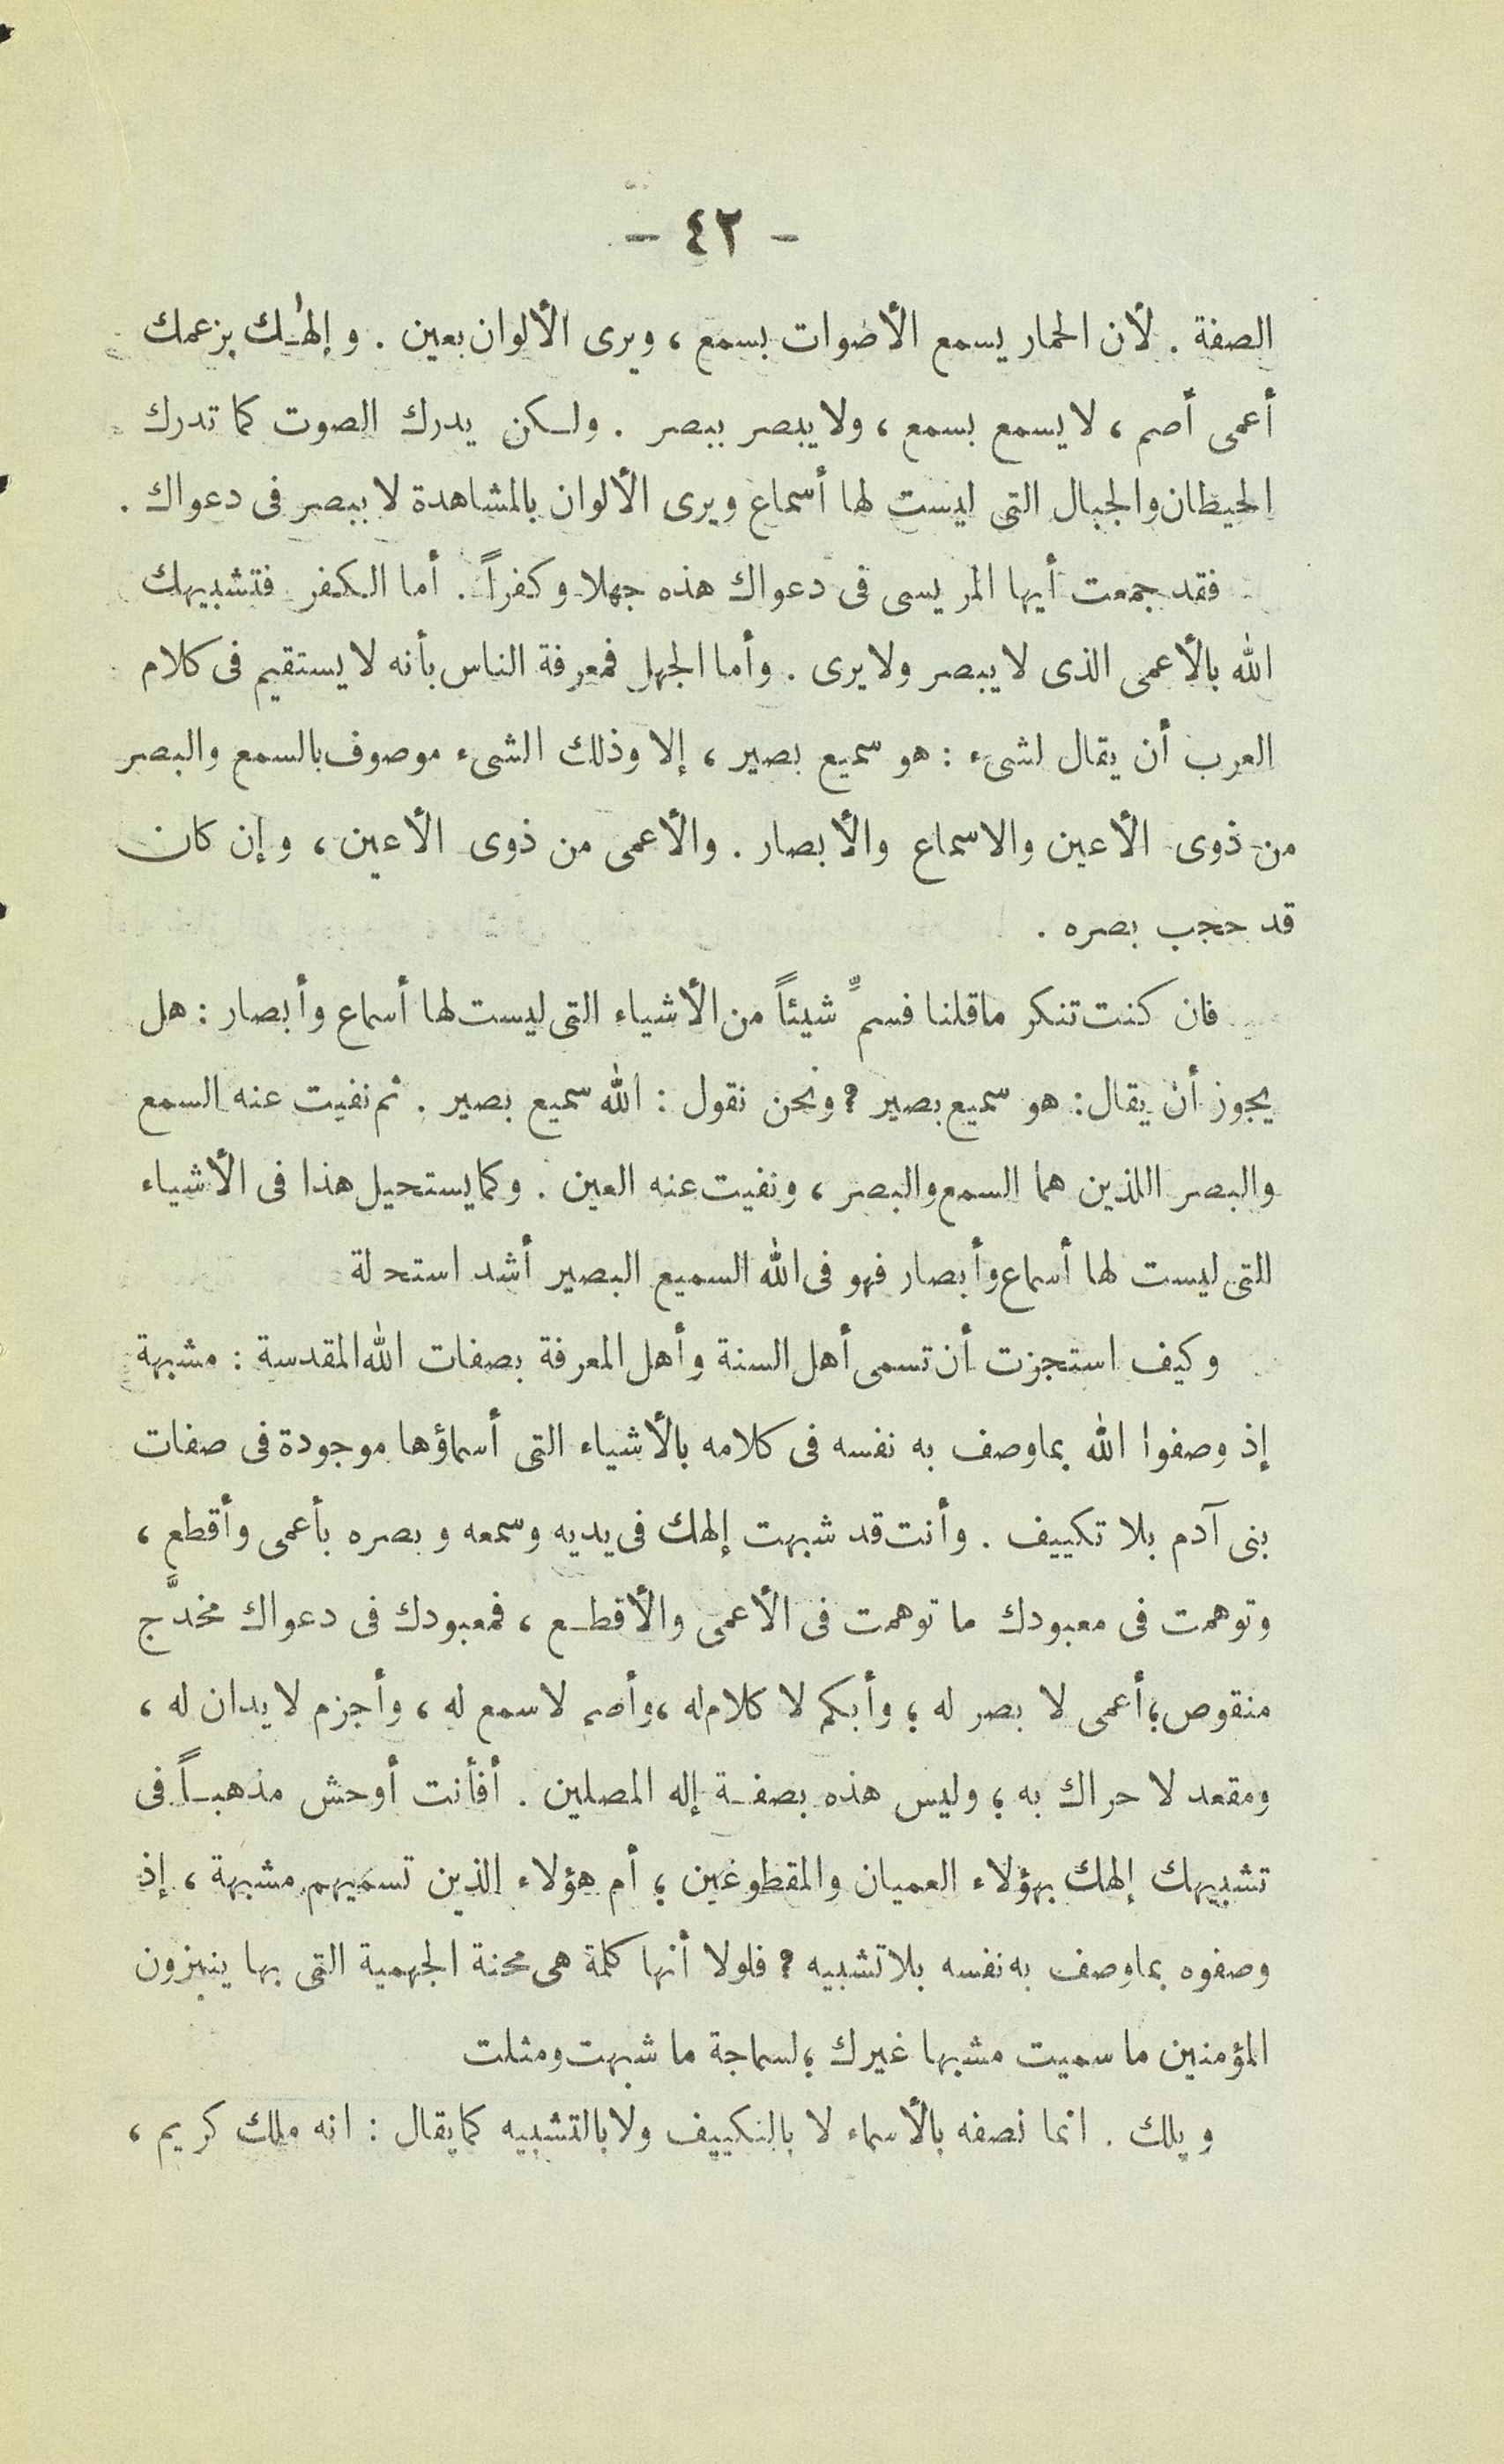 - ٤٢ -
الصفة . لأن الحمار يسمع الأصوات بسمع ، ويرى الألوان بعين . وإلهـٰك بزعمك
أعمى أصم ، لا يسمع بسمع ، ولا يبصر ببصر . ولـكن يدرك الصوت كما تدرك
الحيطان والجبال التى ليست لها أسماع ويرى الألوان بالمشاهدة لا ببصر فى دعواك .
فقد جمعت أيها المريسى فى دعواك هذه جهلا وكفراً . أما الـكفر فتشبيهك
الله بالأعمى الذى لا يبصر ولا يرى . وأما الجهل فمعرفة الناس بأنه لا يستقيم فى كلام
العرب أن يقال لشىء : هو سميع بصير ، إلا وذلك الشىء موصوف بالسمع والبصر
من ذوى الأعين والاسماع والأبصار . والأعمى من ذوى الأعين ، وإن كان
قد حجب بصره .
فان كنت تنكر ماقلنا فسمِّ شيئاً من الأشياء التى ليست لها أسماع وأبصار : هل
يجوز أن يقال : هو سميع بصير ؟ ونحن نقول : الله سميع بصير . ثم نفيت عنه السمع
والبصر اللذين هما السمع والبصر ، ونفيت عنه العين . وكما يستحيل هذا فى الأشياء
التى ليست لها أسماع وأبصار فهو فى الله السميع البصير أشد استحـلة
وكيف استجزت أن تسمى أهل السنة وأهل المعرفة بصفات الله المقدسة : مشبهة
إذ وصفوا الله بما وصف به نفسه فى كلامه بالأشياء التى أسماؤها موجودة فى صفات
بنى آدم بلا تكييف . وأنت قد شبهت إلهك فى يديه وسمعه وبصره بأعمى وأقطع ،
وتوهمت فى معبودك ما توهمت فى الأعمى والأقطـع ، فمعبودك فى دعواك مخدَّج
منقوص ؛ أعمى لا بصر له ؛ وأبكم لا كلام له ، وأصم لا سمع له ، وأجزم لا يدان له ،
ومقعد لا حراك به ؛ وليس هذه بصفـة إله المصلين . أفأنت أوحش مذهبـاً فى
تشبيهك إلهك بهؤلاء العميان والمقطوعين ؛ أم هؤلاء الذين تسميهم مشبهة ، إذ
وصفوه بما وصف به نفسه بلا تشبيه ؟ فلولا أنها كلمة هى محنة الجهمية التى بها ينبزون
المؤمنين ما سميت مشبها غيرك ؛ لسماجة ما شبهت ومثلت
ويلك . انما نصفه بالأسماء لا بالتكييف ولا بالتشبيه كما يقال : انه ملك كريم ،